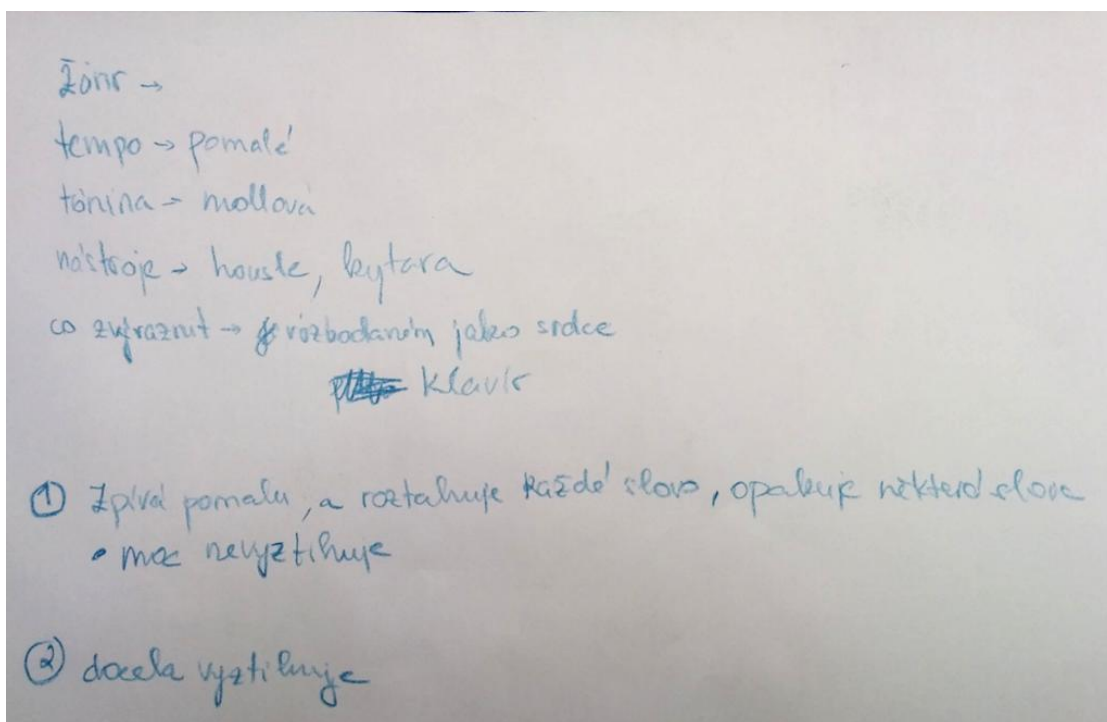 Žánr →
tempo → pomalé
tónina → mollová
nástroje → housle, kytara
co zvýraznit → rozbodaném jako srdce
klavír
① Zpívá pomalu, a roztahuje každé slovo, opakuje některá slova
• moc nevyztihuje
② docela vyztihuje